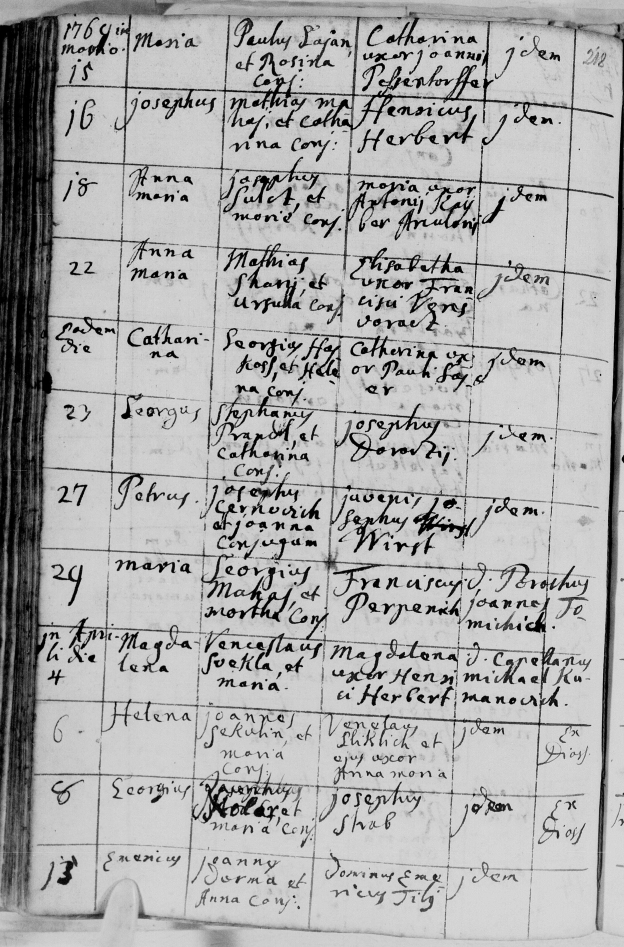 1769 in
martio.
15
Maria
Paulus Lajan,
et Rosina
Conj:
Catharina
uxor joannis
Pessendorffer
jdem
218
16
josephus
mathias ma
has, et Catha
rina Conj:
Henricus
Herbert
jdem.
18
Anna
maria
josephus
Sulck, et
marie Conj.
maria uxor
Antonij Kay
ber
jdem
22
Anna
maria
Mathias
Sharij, et
ursula Conj
Elisabetha
uxor Fran
cisci
jdem
Eadem
die
Cathari-
na
Georgius Has
Koss, et Hele
na Conj.
Catharina ux
or Pauli
er
jdem
23
Georgus
Stephanus
et
Catharina
Conj.
josephus
Doroczij.
jdem.
27
Petrus.
josephus
Cernovich
et joanna
Conjugum
juvenis jo-
sephus
Wirst
jdem.
29
maria
Georgius
Mahas, et
martha Conj
Franciscus
Perpenich
d. Parochus
joannes To-
michich.
jn Apri-
li die
4
Magda
lena
Venceslaus
Svekla, et
maria.
Magdalena
uxor Henri
ci Herbert
d. Capellanus
michael Ku-
manovich.
6
Helena
joannes
Sekulin, et
maria
Conj.
Venelaus
Sliklich et
ejus uxor
Anna maria
jdem
Ex
Dioss.
8
Georgius
et
maria, Conj.
josephus
Strab
jdem
Ex
Dioss
13
Emericus
joannes
Derma et
Anna Conj.
Dominus Eme
ricus
jdem